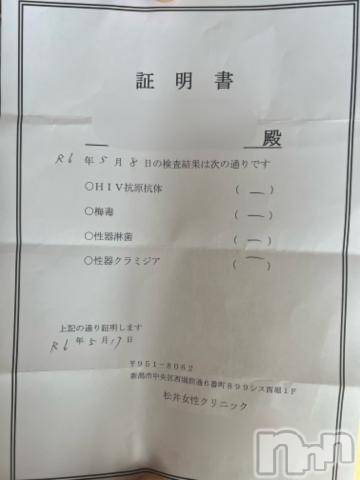 証明書
殿
R6年5月8日の検査結果は次の通りです
○HIV抗原抗体 (ー)
○梅毒 (ー)
○性器淋菌 (ー)
○性器クラミジア (ー)
上記の通り証明します
R6年5月17日
〒951-8062
新潟市中央区西堀前通6番町899シス西堀1F
松井女性クリニック